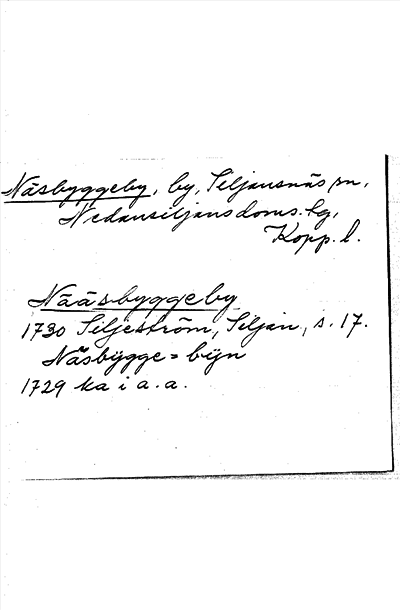 Näsbyggeby, by, Siljansnäs sn,
Nedansiljans doms. hg,
Kopp. l.
Nääsbyggeby
1730 Siljeström, Siljan, s. 17.
Näsbÿgge = bÿn
1729 ka i a. a.